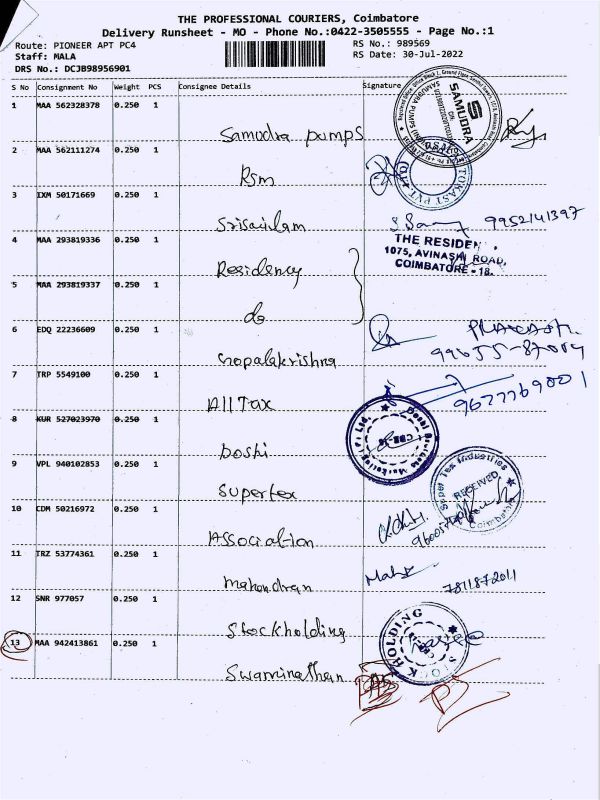 THE PROFESSIONAL COURIERS, Coimbatore
Delivery Runsheet - MO - Phone No.:0422-3505555 - Page No.:1
Route: PIONEER APT PC4
RS No.: 989569
Staff: MALA
RS Date: 30-Jul-2022
DRS No.: DCJB98956901
S No Consignment No Weight PCS Consignee Details Signature
1 MAA 562328378 0.250 1
Samudra pumps
SAMUDRA
2 MAA 562111274 0.250 1
Rsm
3 IXM 50171669 0.250 1
Srisailam
9952141397
4 MAA 293819336 0.250 1
THE RESIDEN
1075, AVINASHI ROAD,
COIMBATORE - 18.
Residency
5 MAA 293819337 0.250 1
do
6 EDQ 22236609 0.250 1
Gopalakrishna
7 TRP 5549100 0.250 1
All Tax
9677769001
8 KUR 527023970 0.250 1
Doshi
9 VPL 940102853 0.250 1
Supertex
Super Tex Industries
RECEIVED
Coimbatore
10 CDM 50216972 0.250 1
Association
11 TRZ 53774361 0.250 1
Mahendran
7811872011
12 SNR 977057 0.250 1
Stockholding
STOCK HOLDING
13 MAA 942413861 0.250 1
Swaminathan